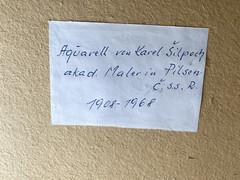 Aquarell von Karel Šilpoch
akad. Maler in Pilsen
Č.S.S.R.
1908-1968